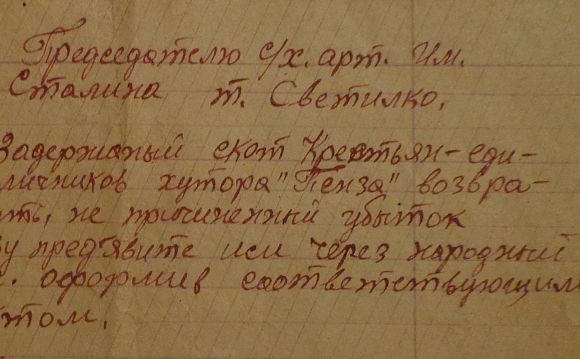 Председателю с/х. арт. Им.
Сталина т. Светилко.
Задержаный скот Крестьян-еди-
личников хутора "Пенза" возвра-
ить, не причиненный убыток
ву предъявите иси через народный
. оформив соответствующим
ктом.